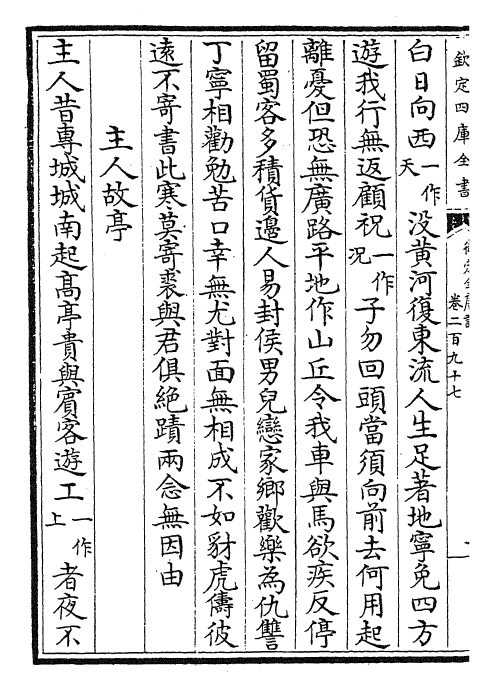 欽定四庫全書
卷二百九十七
白日向西一作天没黄河復東流人生足著地寧免四方
遊我行無返顧祝一作况子勿回頭當須向前去何用起
離憂但恐無廣路平地作山丘令我車與馬欲疾反停
留蜀客多積貨邊人易封侯男兒戀家鄉歡樂為仇讐
丁寧相勸勉苦口幸無尤對面無相成不如豺虎儔彼
遠不寄書此寒莫寄裘與君俱絶蹟兩念無因由
主人故亭
主人昔專城城南起髙亭貴與賓客遊工一作上者夜不